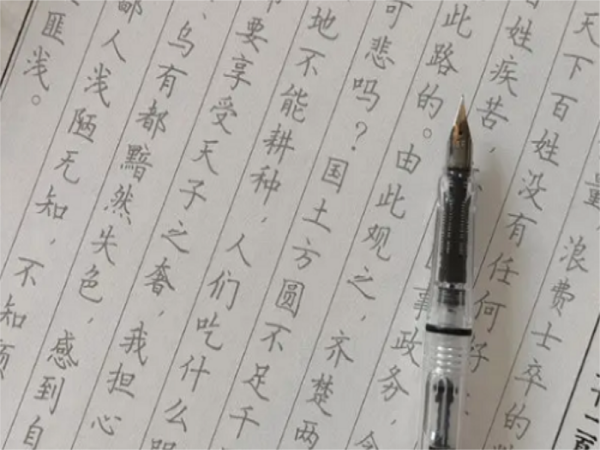 量,浪费士卒的
天下百姓没有任何好
姓疾苦,事政务,
此路的。由此观之,齐楚两
可悲吗?国土方圆不足千
地不能耕种,人们吃什么
要享受天子之奢,我担心
乌有都黯然失色,感到自
鄙人浅陋无知,不知
匪浅。